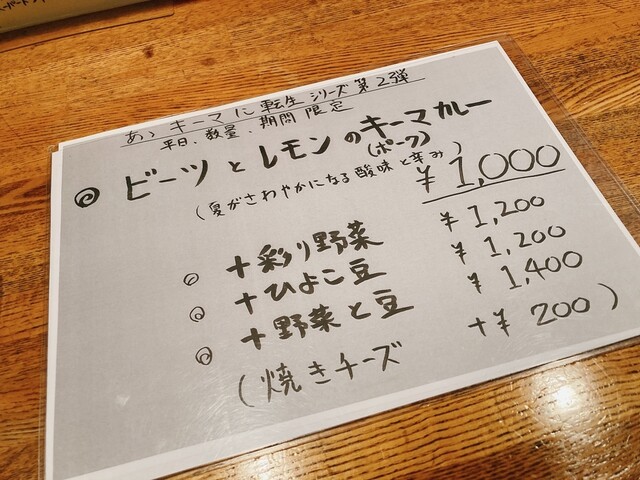 あゝキーマに転生シリーズ第2弾
平日、数量、期間限定
◎ ビーツとレモンのキーマカレー
(ポーク)
(夏がさわやかになる酸味と辛み) ¥1,000
◎ +彩り野菜 ¥1,200
◎ +ひよこ豆 ¥1,200
◎ +野菜と豆 ¥1,400
(焼きチーズ +¥200)